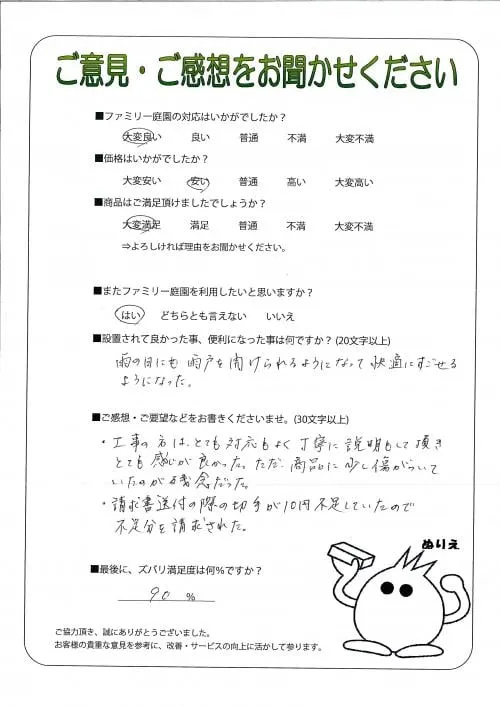 ご意見・ご感想をお聞かせください
■ファミリー庭園の対応はいかがでしたか？
大変良い 良い 普通 不満 大変不満
■価格はいかがでしたか？
大変安い 安い 普通 高い 大変高い
■商品はご満足頂けましたでしょうか？
大変満足 満足 普通 不満 大変不満
⇒よろしければ理由をお聞かせください。
■またファミリー庭園を利用したいと思いますか？
はい どちらとも言えない いいえ
■設置されて良かった事、便利になった事は何ですか？(20文字以上)
雨の日にも雨戸を開けられるようになって快適にすごせる
ようになった。
■ご感想・ご要望などをお書きくださいませ。(30文字以上)
・工事の方は、とても対応もよく丁寧に説明もして頂き
とても感じが良かった。ただ、商品に少し傷がついて
いたのが残念だった。
・請求書送付の際の切手が10円不足していたので
不足分を請求された。
ぬりえ
■最後に、ズバリ満足度は何%ですか？
90 %
ご協力頂き、誠にありがとうございました。
お客様の貴重な意見を参考に、改善・サービスの向上に活かして参ります。